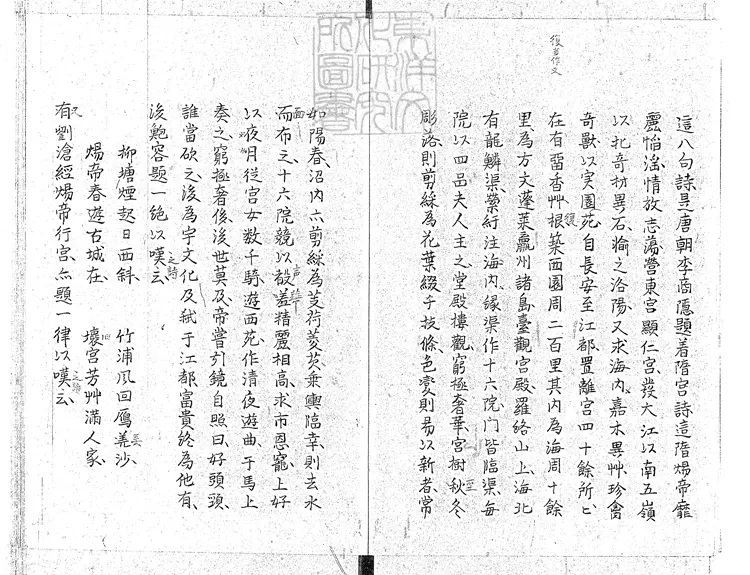 這八句詩是唐朝李商隱題着隋宮詩這隋煬帝靡
麗惱滛情放志蕩營東宮顯仁宮發大江以南五嶺
以北奇材異石輸之洛陽又求海内嘉木異艸珍禽
奇獸以实園苑自長安至江都置離宮四十餘所
在有畱香艸根築西園周二百里其内為海周十餘
里為方丈蓬莱瀛州諸島臺觀宮殿羅絡山上海北
有龍鱗渠縈紆注海内緣渠作十六院門皆臨渠每
院以四品夫人主之堂殿樓觀窮極奢華宮樹秋冬
彫落則剪綵為花葉綴于技條色変則易以新者常
如陽春沼内六剪綵為芰荷菱芡乗輿臨幸則去水
而布之十六院競以殽羞精麗相高求市恩寵上好
以夜月從宮女数千騎遊西苑作清夜遊曲于馬上
奏之窮極奢後後世莫及帝嘗引鏡自照曰好頭頸
誰當砍之後為宇文化及弒于江都富貴終為他有
後鮑容題一絶以嘆云
柳塘煙起日西斜 竹浦風回鴈美沙
煬帝春遊古城在 壞宮芳艸滿人家
有劉滄經煬帝行宮亦題一律以嘆云